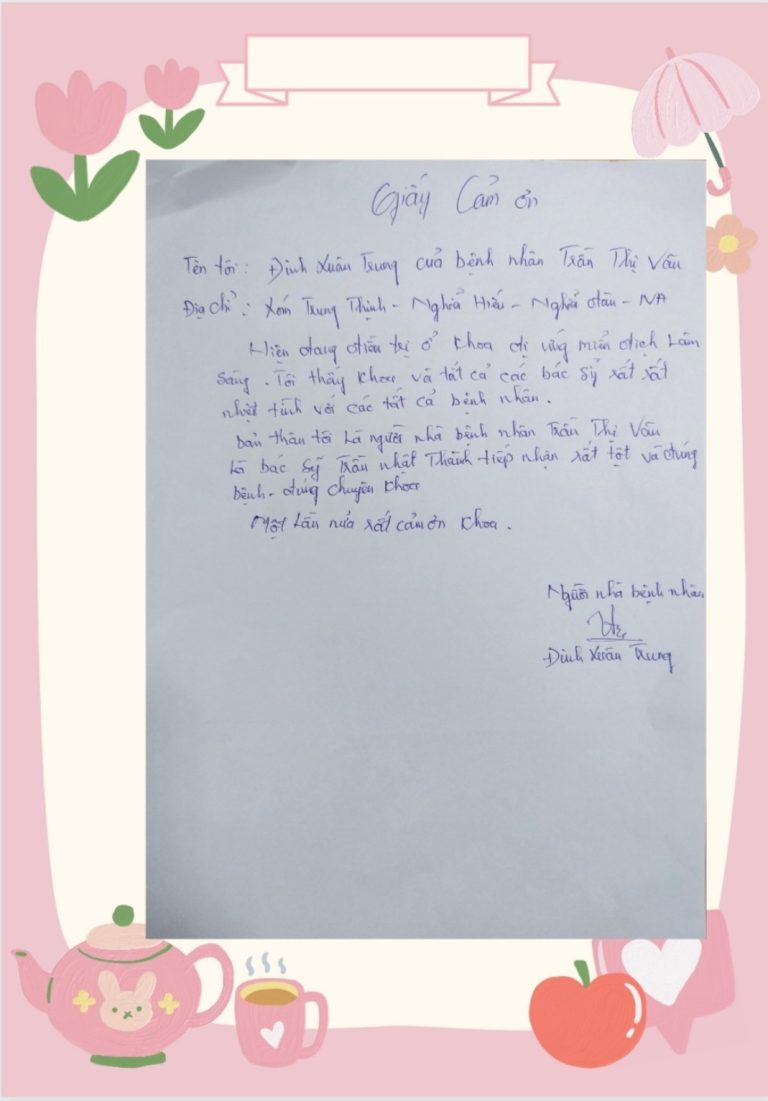 Giấy Cảm ơn
Tên tôi: Đinh Xuân Trung cuả bệnh nhân Trần Thị Vân
Địa chỉ: Xóm Trung Thịnh - Nghĩa Hiếu - Nghĩa đàn - NA
Hiện đang điều trị ở khoa dị ứng miễn dịch Lâm
sàng. Tôi thấy khoa và tất cả các bác sỹ rất rất
nhiệt tình với các tất cả bệnh nhân.
bản thân tôi là người nhà bệnh nhân Trần Thị Vân
là bác sỹ Trần nhật Thành tiếp nhận rất tột và đúng
bệnh - đúng chuyên khoa
Một lần nữa rất cảm ơn khoa.
Người nhà bệnh nhân
Đinh Xuân Trung